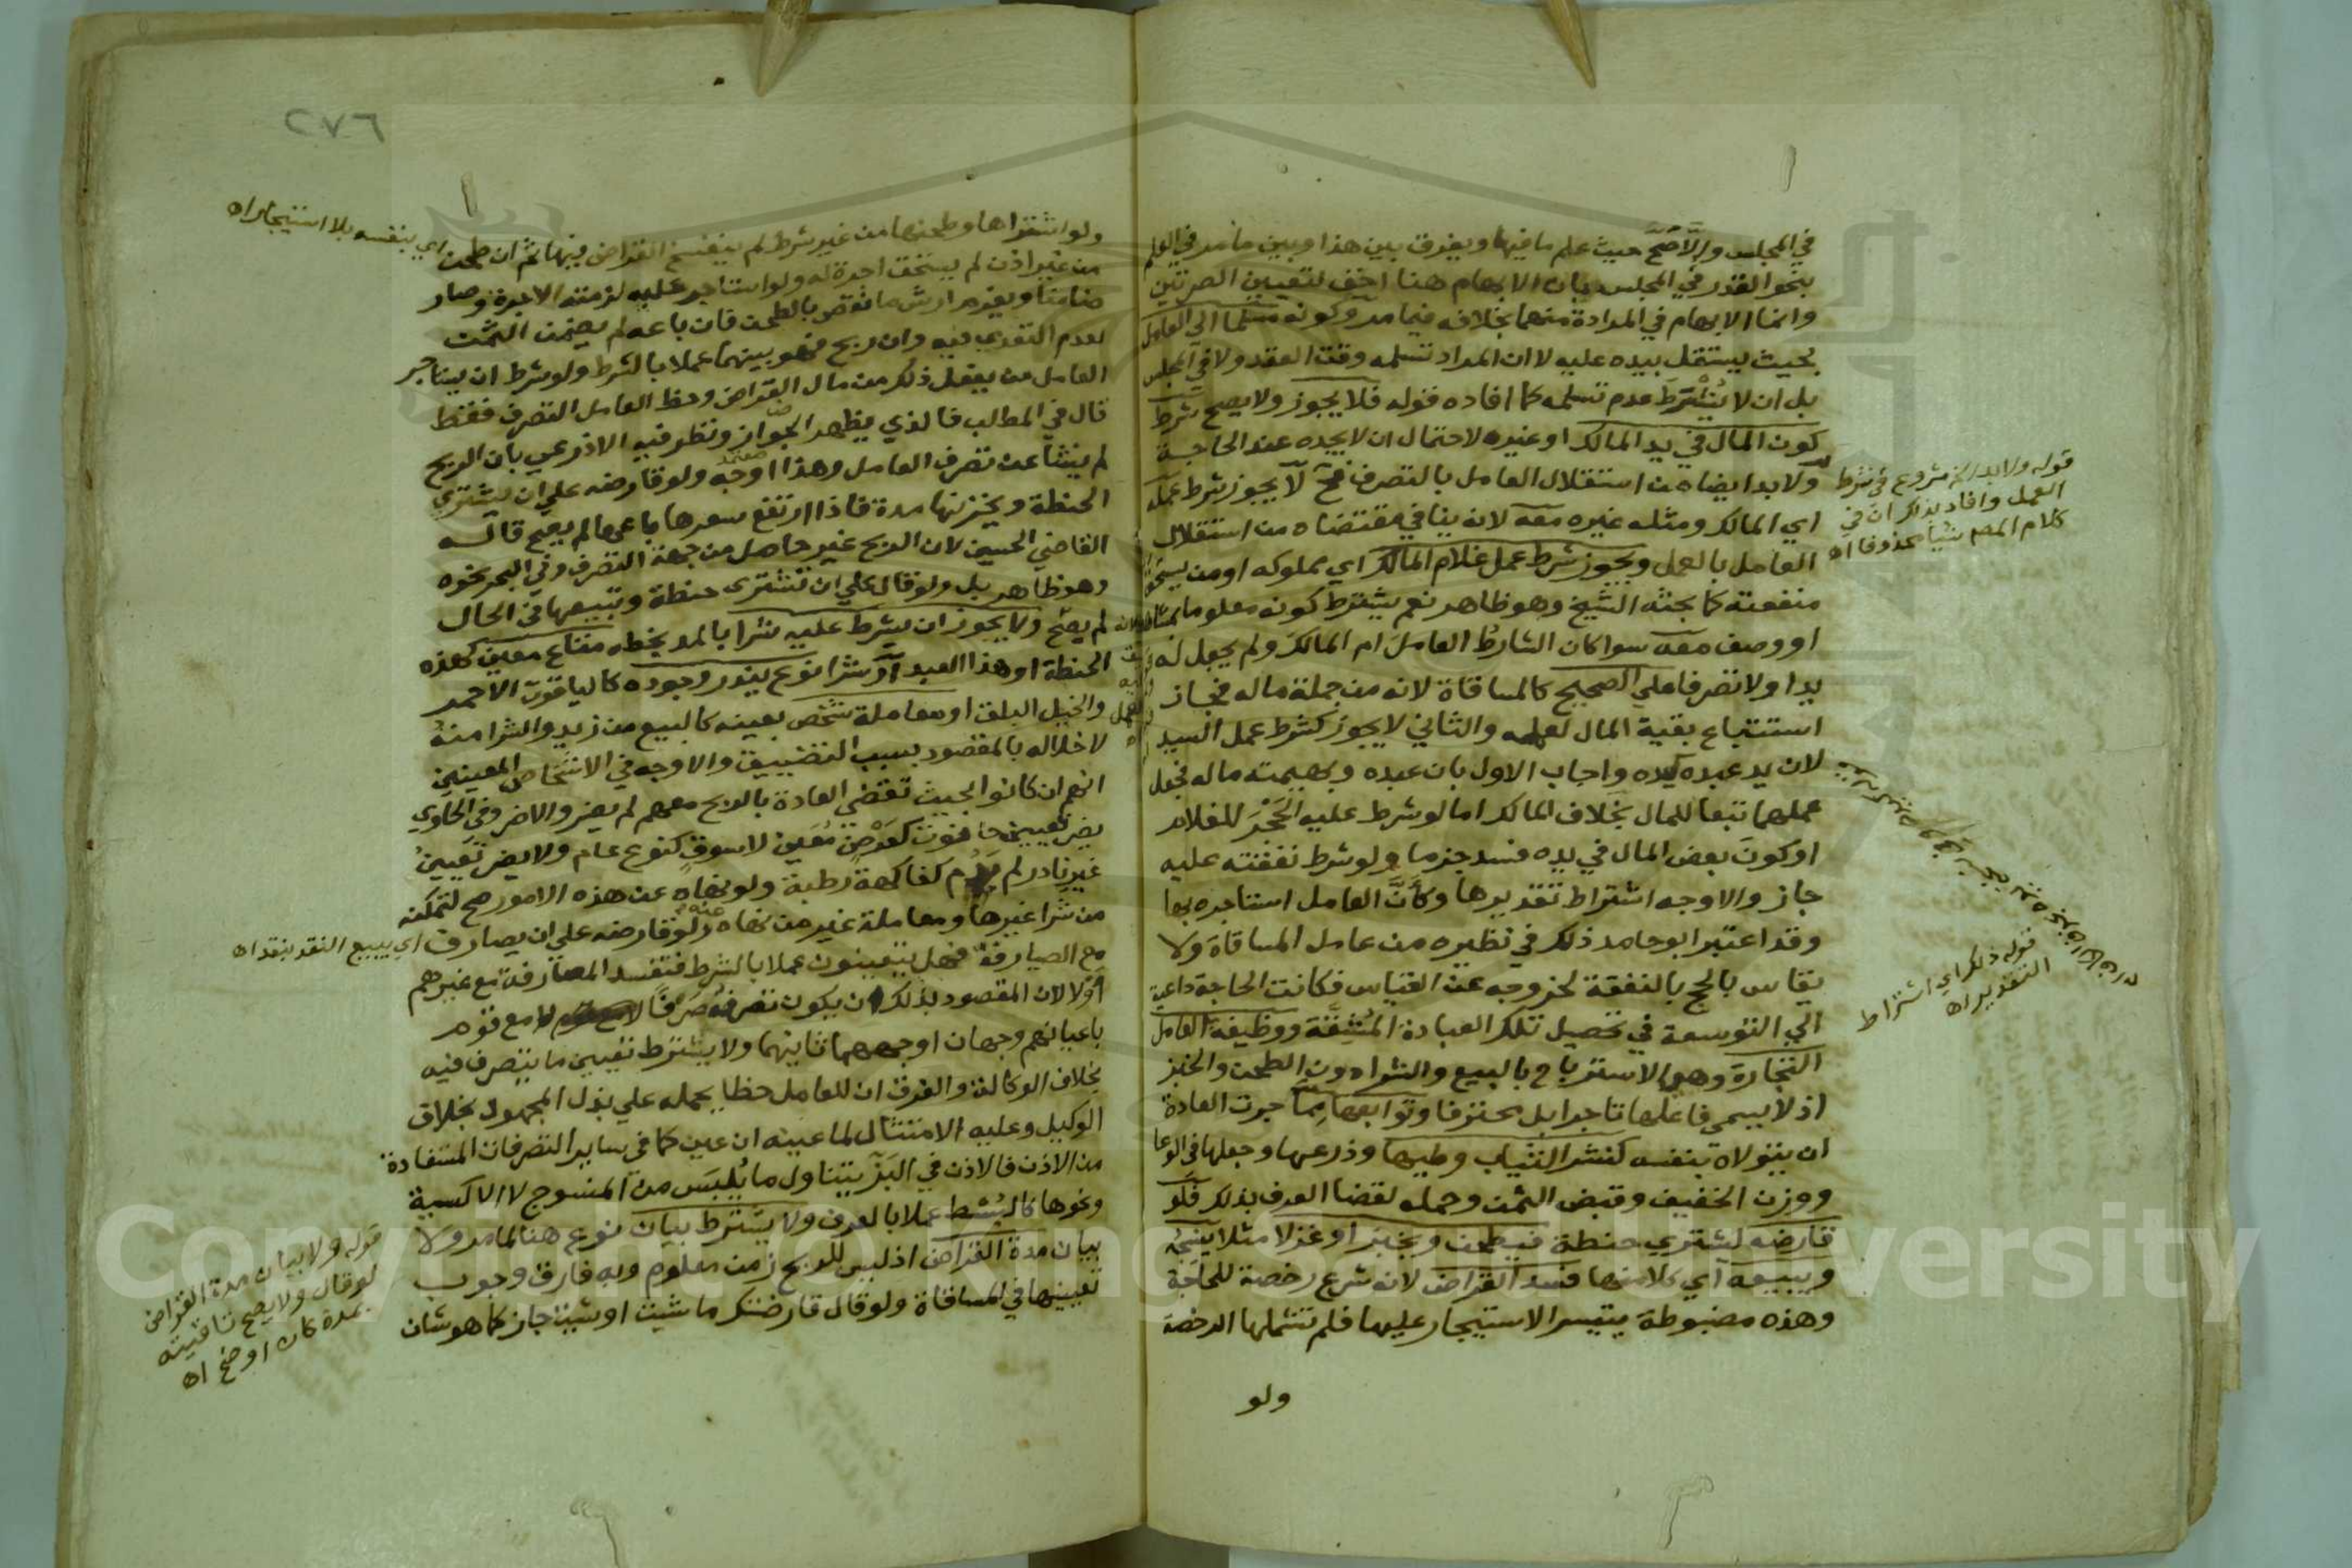 في المجلس والا صح حيث علم ما فيها ويفرق بين هذا وبين ما مر في العلم
بنحو القدر في المجلس بان الابهام هنا اخف لتعيين الصرتين
وانما الابهام في المرادة منهما بخلافه فيما مر وكونه مسلما الى العامل
بحيث يستقل بيده عليه لا ان المراد تسلمه وقت العقد ولا في المجلس
بل ان لا يُشْتَرطَ عدم تسلمه كما افاده قوله فلا يجوز ولا يصح شرط
كون المال في يد المالك او غيره لاحتمال ان لا يجده عند الحاجة
ولا بد ايضا من استقلال العامل بالتصرف فح لا يجوز شرط عمله
اي المالك ومثله غيره معه لانه ينافي مقتضاه من استقلال
العامل بالعمل ويجوز شرط عمل غلام المالك اي مملوكه او من يستحق
منفعته كما بحثه الشيخ وهو ظاهر نعم يشترط كونه معلوما بمشاهدة
او وصف معه سوا كان الشارطُ العاملَ ام المالكَ ولم يجعل له
يدا ولا تصرفا على الصحيح كالمساقاة لانه من جملة ماله فجاز
استتباع بقية المال لعمله والثاني لا يجوز كشرط عمل السيد
لان يد عبده كيده واجاب الاول بان عبده وبهيمته ماله فجعل
عملهما تبعا للمال بخلاف المالك اما لو شرط عليه الحَجْرَ للغلام
او كونَ بعض المال في يده فسد جزما ولو شرط نفقته عليه
جاز والاوجه اشتراط تقديرها وكأنَّ العامل استاجره بها
وقد اعتبر ابو حامد ذلك في نظيره من عامل المساقاة ولا
يقاس بالحج بالنفقة لخروجه عن القياس فكانت الحاجة داعية
الي التوسعة في تحصيل تلك العبادة المُشِقَّة ووظيفة العامل
التجارة وهي الاسترباح بالبيع والشراء دون الطحن والخبز
اذ لا يسمى فاعلها تاجرا بل محترفا وتوابعها مِمَّا جرت العادة
ان يتولاه بنفسه كنشر الثياب وطيها وذرعها وجعلها في الوعا
ووزن الخفيف وقبض الثمن وحمله لقضا العرف بذلك فلو
قارضه لشتري حنطة فيطحن ويخبز او غزلا مثلا ينسجه
ويبيعه اي كلا منها فسد القراض لانه شرع رخصة للحاجة
وهذه مضبوطة يتيسر الاستيجار عليها فلم تشملها الرخصة
ولو
قوله ولا بد الخ شروع في شرط
العمل وافاد بذلك ان في
كلام المص شيا محذوفا اه
قوله ذلك اي اشتراط
التقدير اه
٢٧٦
ولو اشتراها وطحنها من غير شرط لم ينفسخ القراض فيها ثم ان طحن
اي بنفسه بلا استيجار اه
من غير اذن لم يستحق اجرة له ولو استاجر عليه لزمته الاجرة وصار
ضامنا ويغرم ارش ما نقص بالطحن فان باعه لم يضمن الثمن
لعدم التعدي فيه وان ربح فهو بينهما عملا بالشرط ولو شرط ان يستاجر
العامل من يفعل ذلك من مال القراض وحظ العامل التصرف فقط
قال في المطلب فالذي يظهر الجواز ونظر فيه الاذرعي بان الربح
لم ينشأ عن تصرف العامل وهذا اوجه ولو قارضه على ان يشتري
معتمد
الحنطة ويخزنها مدة فاذا ارتفع سعرها باعها لم يصح قاله
القاضي الحسين لان الربح غير حاصل من جهة التصرف وفي البحر نحوه
وهو ظاهر بل ولو قال على ان تشتري حنطة وتبيعها في الحال
لم يصح ولا يجوز ان يشرط عليه شرا بالمد بخطه متاع معين كهذه
الحنطة او هذا العبد او شرا نوع يندر وجوده كالياقوت الاحمر
والخيل البلق او معاملة شخص بعينه كالبيع من زيد والشرا منه
لاخلاله بالمقصود بسبب التضييق والاوجه في الاشخاص المعينين
انهم ان كانوا بحيث تقضي العادة بالربح معهم لم يضر والا ضر وفي الحاوي
يضر تعيين حانوت كعَرْضٍ مُعَيَن لا سوق كنوع عام ولا يضر تعيينُ
غير نادر لم يَدُم كفاكهة رطبة ولو نهاه عن هذه الامور صح لتمكنه
من شرا غيرها ومعاملة غير من نهاه عنه ولو قارضه على ان يصارف
اي يبيع النقد بنقد اه
مع الصيارفة فهل يتعينون عملا بالشرط فتفسد المصارفة مع غيرهم
او لا لان المقصود بذلك ان يكون تصرفه صَرْفًا لا مع قوم
باعيانهم وجهان اوجههما ثانيهما ولا يشترط تعيين ما يتصرف فيه
بخلاف الوكالة والفرق ان للعامل حظا يحمله علي بذل المجهود بخلاف
الوكيل وعليه الامتثال لما عينه ان عين كما في ساير التصرفات المستفادة
من الاذن فالاذن في البَزّ يتناول ما يُلبَس من المنسوج لا الاكسية
ونحوها كالبُسُط عملا بالعرف ولا يشترط بيان نوع هنا لما مر ولا
بيان مدة القراض اذ ليس للربح زمن معلوم وبه فارق وجوب
تعيينها في المساقاة ولو قال قارضتك ما شيت او شيت جاز كما هو شان
قوله ولا بيان مدة القراض
لو قال ولا يصح تاقيته
بمدة كان اوضح اه
Copyright © King Saud University